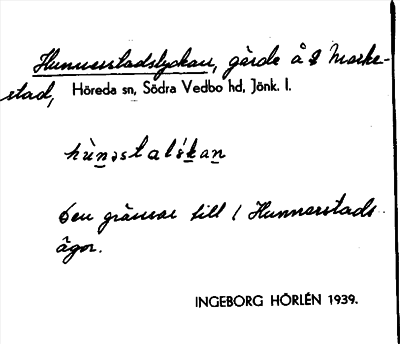 Hunnerstadslyckan, gärde å 2 Marke-
stad, Höreda sn, Södra Vedbo hd, Jönk. l.
hùnəstalýkan
Den gränsar till / Hunnerstads
ägor.
INGEBORG HÖRLÉN 1939.